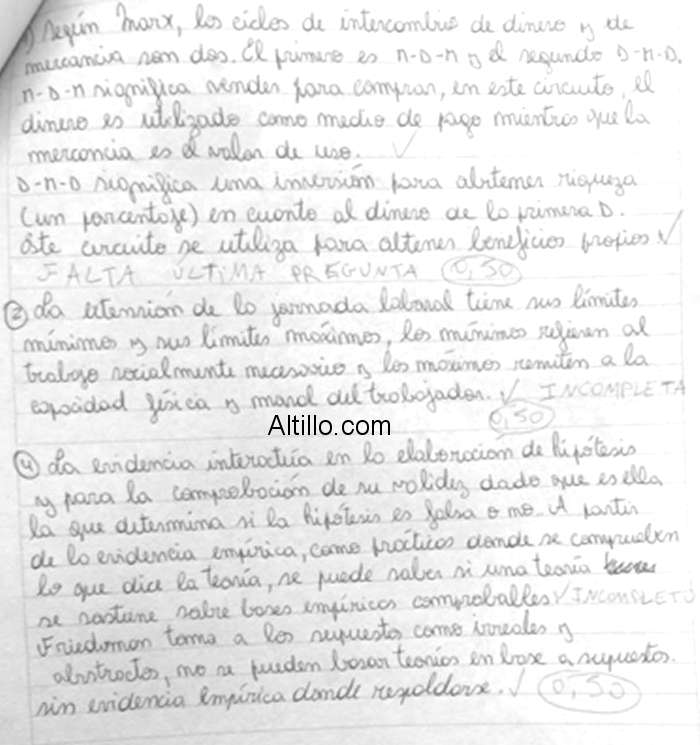 ) Según Marx, los ciclos de intercambio de dinero y de
mercancia son dos. El primero es M-D-M y el segundo D-M-D.
M-D-M significa vender para comprar, en este circuito, el
dinero es utilizado como medio de pago mientras que la
mercancia es el valor de uso. ✓
D-M-D significa una inversión para obtener riqueza
(un porcentaje) en cuanto al dinero de la primera D.
Este circuito se utiliza para obtener beneficios propios. ✓
FALTA ÚLTIMA PREGUNTA 0,50
③ La extensión de la jornada laboral tiene sus límites
mínimos y sus límites máximos, los mínimos refieren al
trabajo socialmente necesario y los máximos remiten a la
capacidad física y moral del trabajador. ✓ INCOMPLETA
0,50
Altillo.com
④ La evidencia interactúa en la elaboracion de hipótesis
y para la comprobación de su validez dado que es ella
la que determina si la hipótesis es falsa o no. A partir
de la evidencia empírica, como prácticas donde se comprueben
lo que dice la teoría, se puede saber si una teoría
se sostiene sobre bases empíricas comprobables ✓ INCOMPLETO
Friedman toma a los supuestos como irreales y
abstractos, no se pueden basar teorías en base a supuestos.
sin evidencia empírica donde respaldarse. ✓ 0,50